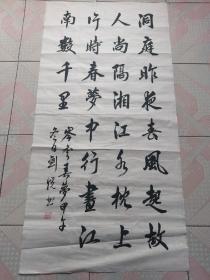 洞庭昨夜春風起故
人尚隔湘江水枕上
片時春夢中行盡江
南數千里
岑參春夢甲午
冬月劍